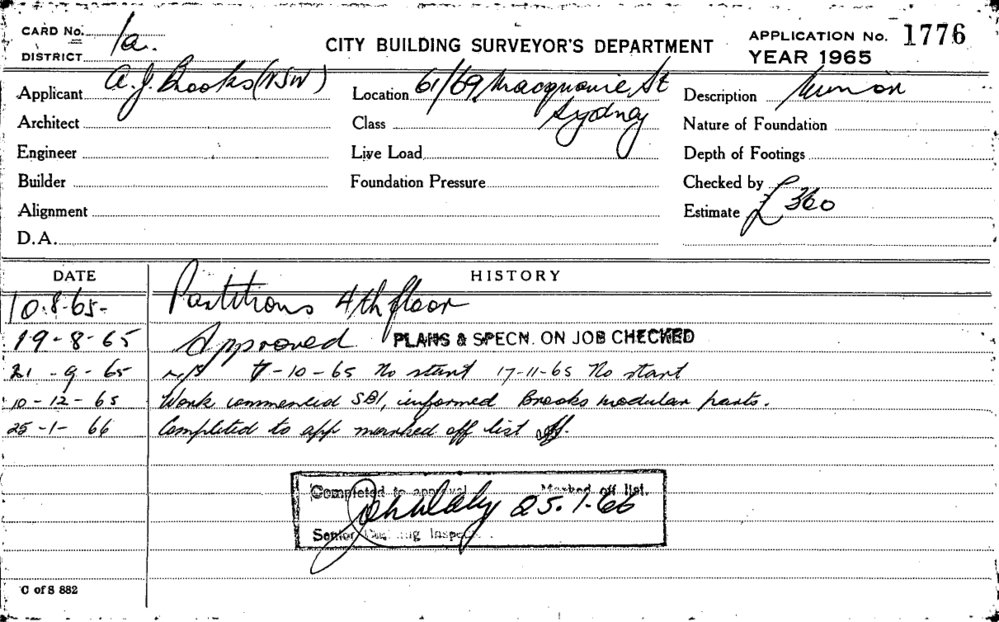 CARD No. 1a.
DISTRICT
CITY BUILDING SURVEYOR'S DEPARTMENT
APPLICATION No. 1776
YEAR 1965
Applicant A.J. Brooks (NSW)
Location 61/69 Macquarie St
Sydney
Description
Architect
Class
Nature of Foundation
Engineer
Live Load
Depth of Footings
Builder
Foundation Pressure
Checked by
Alignment
Estimate £ 360
D.A.
DATE HISTORY
10.8.65- Partitions 4th floor
19-8-65 Approved PLANS & SPECN. ON JOB CHECKED
21-9-65 n/s 7-10-65 No start 17-11-65 No start
10-12-65 Work commenced SBI, informed Brooks modular parts.
25-1-66 Completed to app marked off list
Completed to approval Marked off list.
25.1.66
Senior Building Inspec
C of S 882